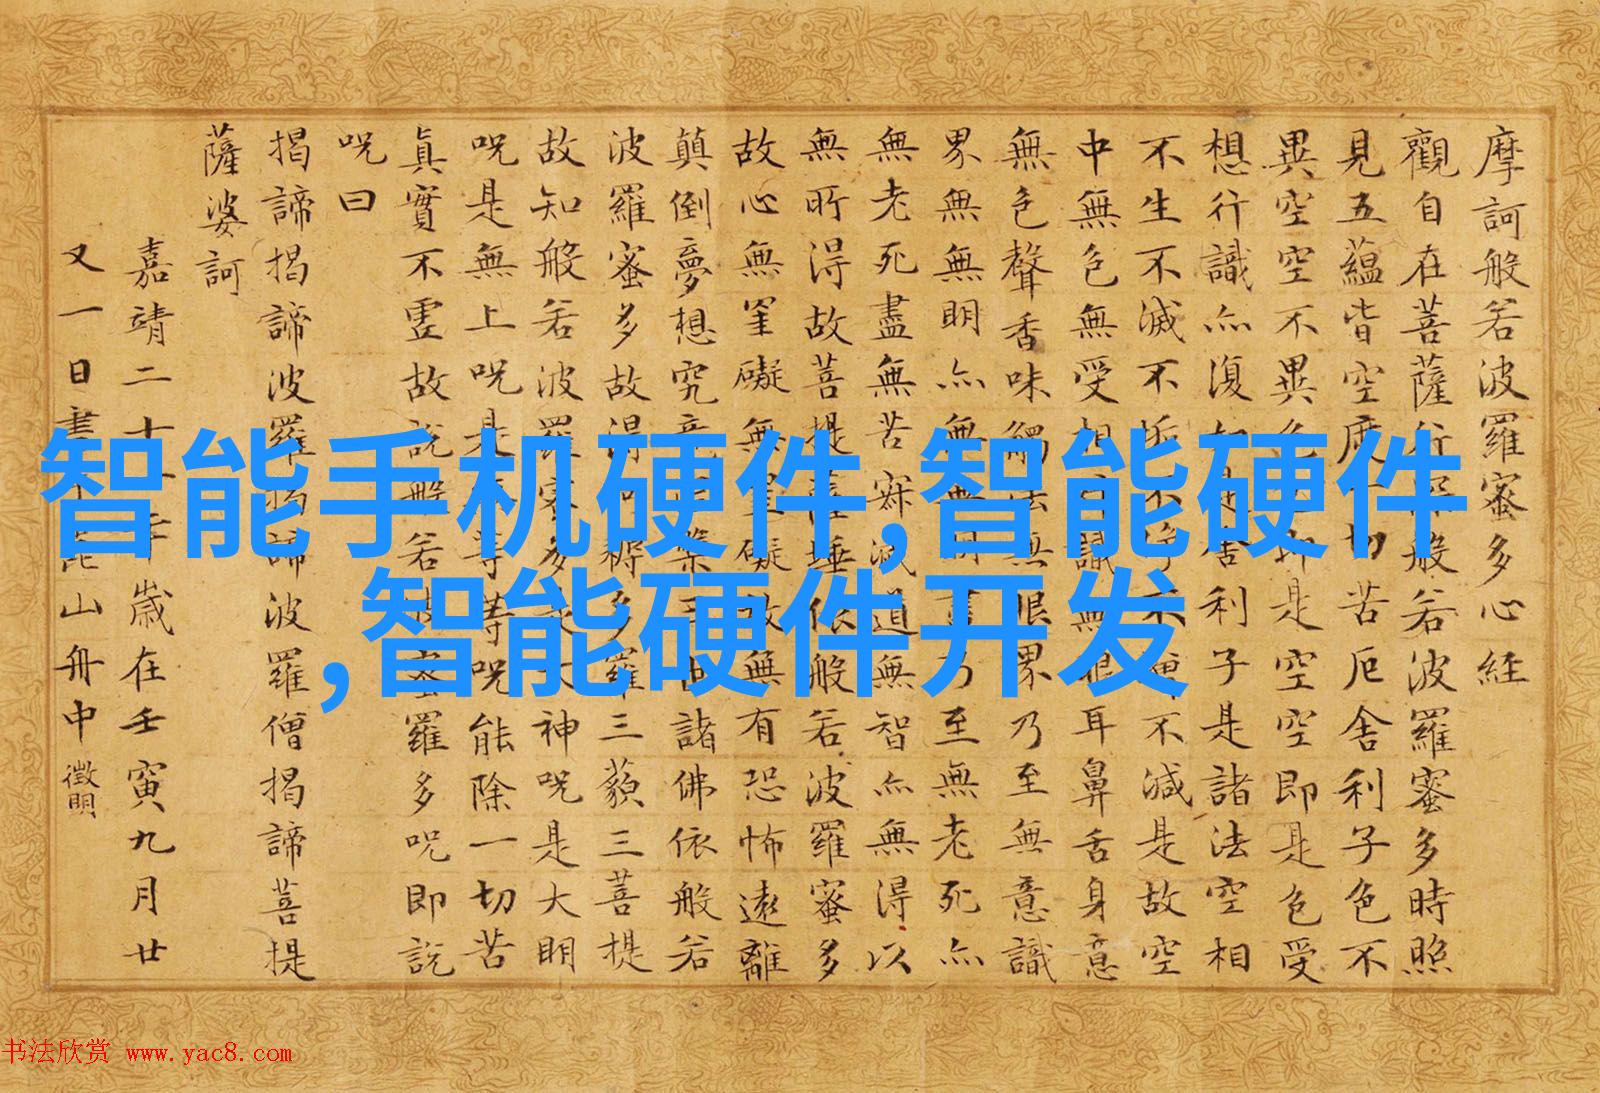 摩訶般若波羅蜜多心経
觀自在菩薩行深般若波羅蜜多時照
見五蘊皆空度一切苦厄舍利子色不
異空空不異色色即是空空即是色受
想行識亦復如是舍利子是諸法空相
不生不滅不垢不淨不增不減是故空
中無色無受想行識無眼耳鼻舌身意
無色聲香味觸法無眼界乃至無意識
界無無明亦無無明盡乃至無老死亦
無老死盡無苦寂滅道無智亦無得以
無所得故菩提薩埵依般若波羅蜜多
故心無罣礙無罣礙故無有恐怖遠離
顛倒夢想究竟涅槃三世諸佛依般若
波羅蜜多故得阿耨多羅三藐三菩提
故知般若波羅蜜多是大神呪是大明
呪是無上呪是無等等呪能除一切苦
真實不虛故說般若波羅蜜多呪即說
呪曰
揭諦揭諦波羅揭諦波羅僧揭諦菩提
薩婆訶
嘉靖二十年歲在壬寅九月廿
又一日書崑山舟中 徵明
智能手机硬件,智能硬件
,智能硬件开发
书法欣赏 www.yac8.com